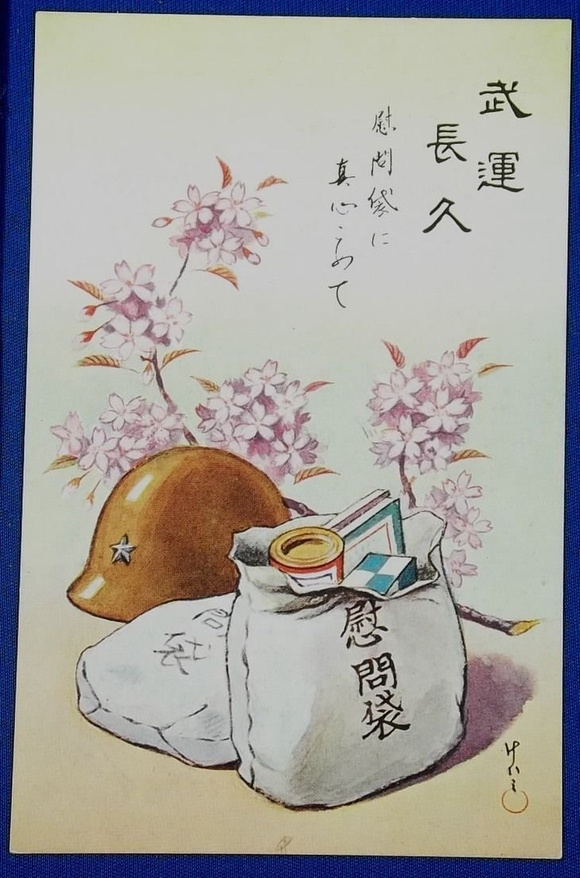 武運
長久
慰問袋に
真心こめて
慰問袋
問袋